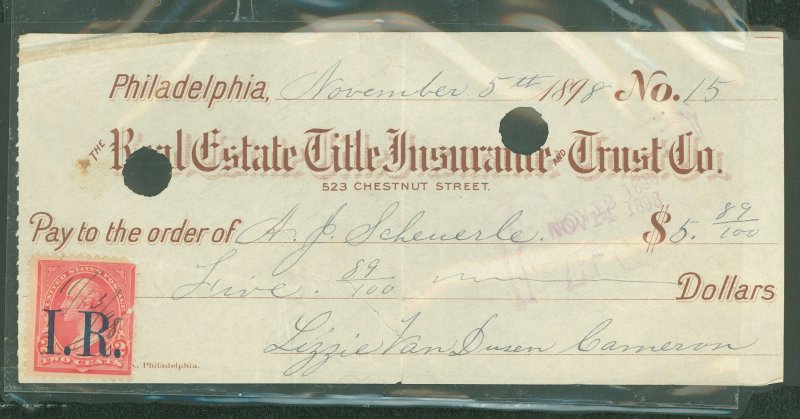 Philadelphia, November 5th 1898 No. 15
THE Real Estate Title Insurance AND Trust Co.
523 CHESTNUT STREET.
NOV 1898
Pay to the order of A. J. Scheuerle. $5. 89/100
Five. 89/100 Dollars
UNITED STATES POSTAGE
I.R.
TWO CENTS
Lizzie Van Dusen Cameron
Philadelphia.